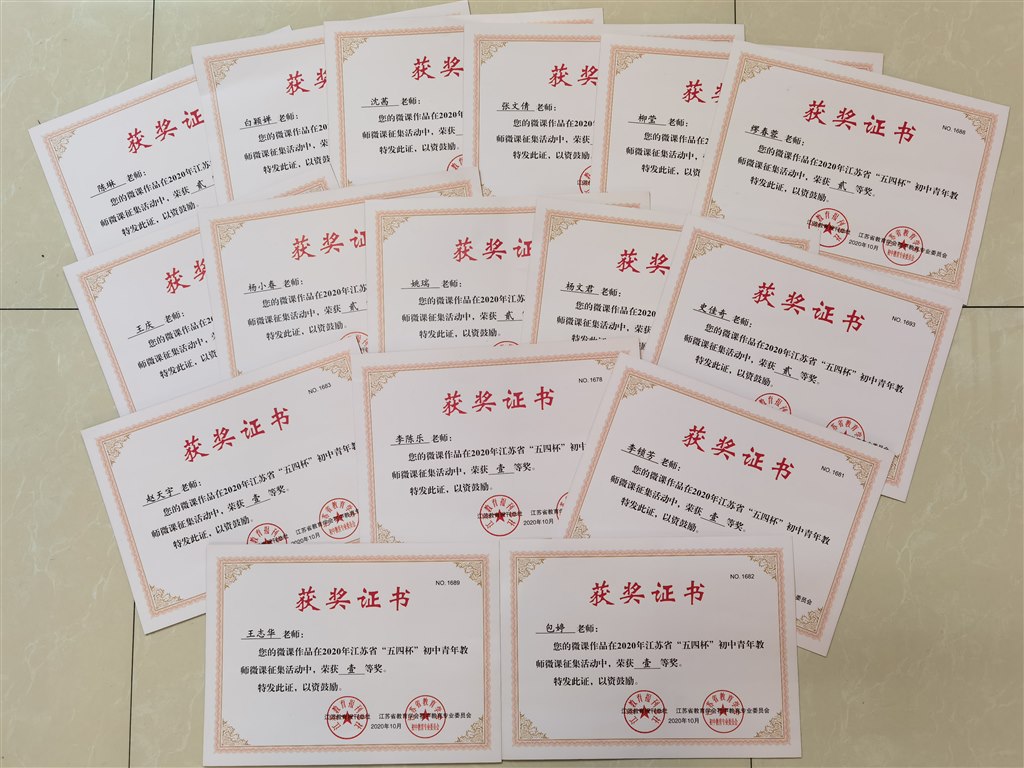 获奖
陈琳 老师：
您的微课作品在2020年江苏
师微课征集活动中，荣获 贰
特发此证，以资鼓励
获奖
白颖婵 老师：
您的微课作品在20
师微课征集活动中，
特发此证，以资鼓
获奖
沈茜 老师：
您的微课作品在2020年
师微课征集活动中，荣获
特发此证，以资鼓励。
获奖
张文倩 老师：
您的微课作品在2020
师微课征集活动中，荣获
特发此证，以资鼓励。
获
柳莹 老师：
您的微课作品在2020年
师微课征集活动中，荣获
特发此证，以资鼓励
获奖证书
NO. 1686
缪春蓉 老师：
您的微课作品在2020年江苏省“五四杯”初中青年教
师微课征集活动中，荣获 贰 等奖。
特发此证，以资鼓励。
2020年10月
获奖
王庆 老师：
您的微课作品在20
师微课征集活动中，
特发此证，以资
获奖证
杨小春 老师：
您的微课作品在2020年江
师微课征集活动中，荣获 贰
特发此证，以资鼓励。
获奖证
姚瑞 老师：
您的微课作品在2020年江苏
师微课征集活动中，荣获 贰
特发此证，以资鼓励。
获奖
杨文君 老师：
您的微课作品在2020
师微课征集活动中，荣获
特发此证，以资鼓励
获奖证书
NO. 1693
史佳奇 老师：
您的微课作品在2020年江苏省“五四杯”初中青年教
师微课征集活动中，荣获 贰 等奖。
特发此证，以资鼓励。
NO. 1683
获奖证书
赵天宇 老师：
您的微课作品在2020年江苏省“五四杯”初中青年
师微课征集活动中，荣获 壹 等奖。
特发此证，以资鼓励。
2020年10月
NO. 1678
获奖证书
李陈乐 老师：
您的微课作品在2020年江苏省“五四杯”初中青年教
师微课征集活动中，荣获 壹 等奖。
特发此证，以资鼓励。
2020年10月
获奖证书
NO. 1681
李倩芳 老师：
您的微课作品在2020年江苏省“五四杯”初中青年教
师微课征集活动中，荣获 壹 等奖。
特发此证，以资鼓励。
委员会
NO. 1689
获奖证书
王志华 老师：
您的微课作品在2020年江苏省“五四杯”初中青年教
师微课征集活动中，荣获 壹 等奖。
特发此证，以资鼓励。
江苏教育报刊总社 江苏省教育学会初中教育专业委员会
2020年10月
NO. 1682
获奖证书
包婷 老师：
您的微课作品在2020年江苏省“五四杯”初中青年教
师微课征集活动中，荣获 壹 等奖。
特发此证，以资鼓励。
江苏教育报刊总社 江苏省教育学会初中教育专业委员会
2020年10月